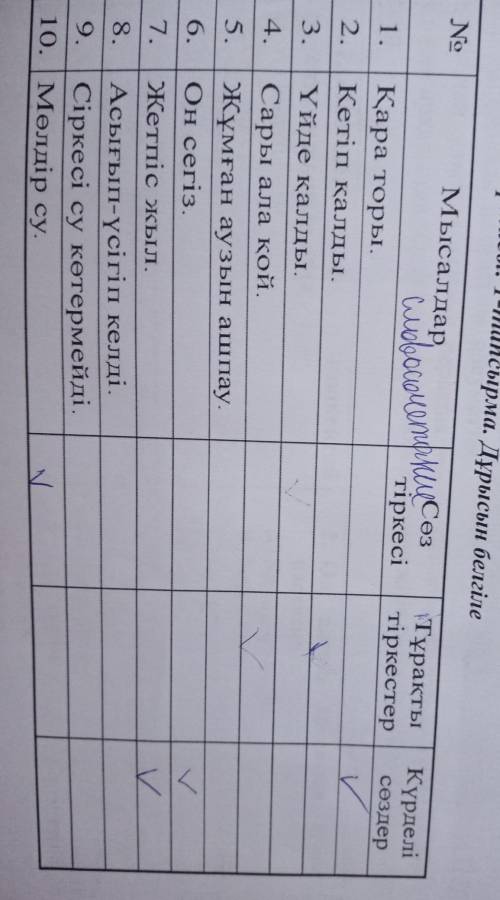 1-тапсырма. Дұрысын белгіле
№ Мысалдар Сөз тіркесі Тұрақты тіркестер Күрделі сөздер
словосочетание
1. Қара торы.
2. Кетіп қалды. ✓
3. Үйде қалды. ✓ ✓
4. Сары ала қой. ✓
5. Жұмған аузын ашпау.
6. Он сегіз. ✓
7. Жетпіс жыл. ✓
8. Асығып-үсігіп келді.
9. Сіркесі су көтермейді.
10. Мөлдір су. ✓